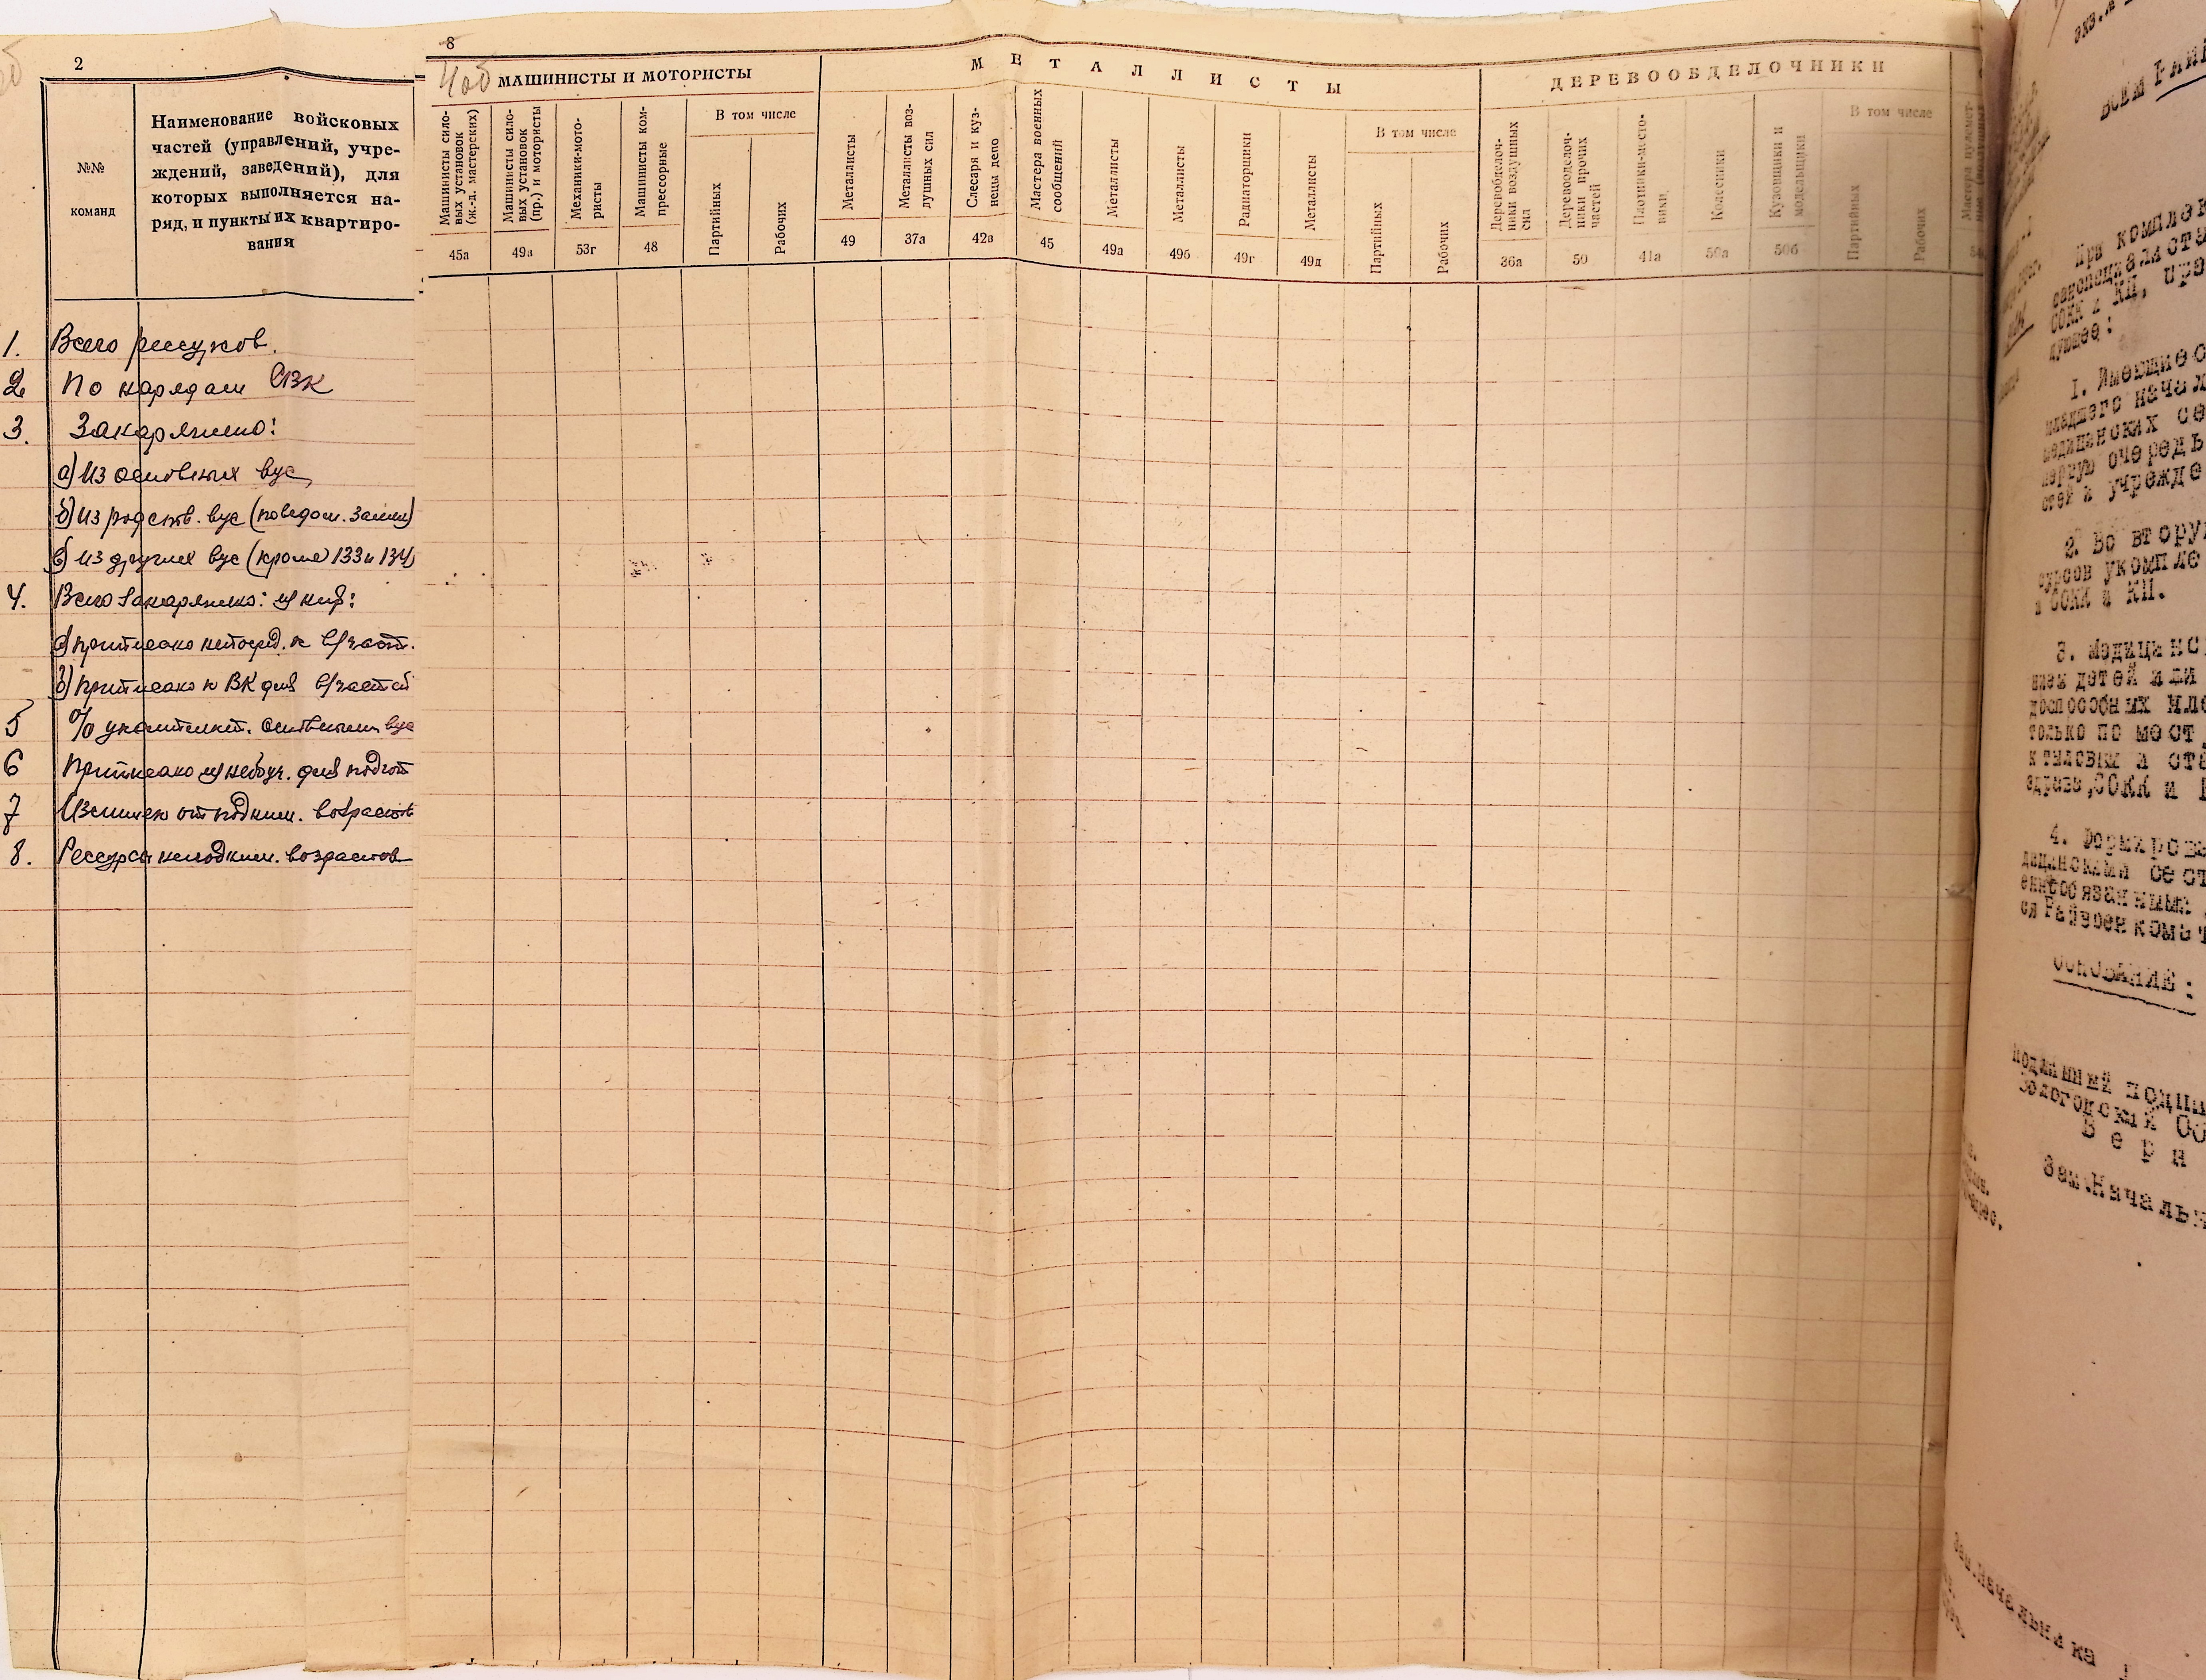 2
№№
команд
Наименование войсковых
частей (управлений, учре-
ждений, заведений), для
которых выполняется на-
ряд, и пункты их квартиро-
вания
1. Всего ресурсов.
2. По нарядам ОВК
3. Закаряжено:
а) Из основных вус
б) Из родств. вус (поведом. замен)
в) из других вус (кроме 133 и 134)
4. Всего : из них:
а) приписано непосред. к в/част.
б) приписано к ВК для в/частей
5 % укомплект. основными вус
6 Приписано из необуч. для подгот
7 Излишек от подним. возрастов
8. Ресурсы неподним. возрастов
8
МАШИНИСТЫ И МОТОРИСТЫ
Машинисты сило-
вых установок
(ж.-д. мастерских)
45а
Машинисты сило-
вых установок
(пр.) и мотористы
49и
Механики-мото-
ристы
53г
Машинисты ком-
прессорные
48
В том числе
Партийных
Рабочих
МЕТАЛЛИСТЫ
Металлисты
49
Металлисты воз-
душных сил
37а
Слесаря и куз-
нецы депо
42в
Мастера военных
сообщений
45
Металлисты
49а
Металлисты
49б
Радиаторщики
49г
Металлисты
49д
В том числе
Партийных
Рабочих
ДЕРЕВООБДЕЛОЧНИКИ
Деревообделоч-
ники воздушных
сил
36а
Деревообделоч-
ники прочих
частей
50
Плотники-мосто-
вики
41а
Колесники
50а
Кузовщики и
модельщики
50б
В том числе
Партийных
Рабочих
экз.
Всем
При комплек
санспециалиста
СОКК и КП, пре
дующее:
1. Имеющиес
младшего начал
медицинских се
первую очередь
стей и учрежде
2. Во втору
сурсов укомпле
и СОКК и КП.
3. Медицинс
них детей или
доспособных
только по мест
к тыловым и
здрава, СОКК и
4. Формирова
дицинскими сест
еннообязанными
ся Райвоенкома
ОСНОВАНИЕ:
подлинный подпи
Вологодский Об
Верн
Зам.Начальн
зам.Начальника